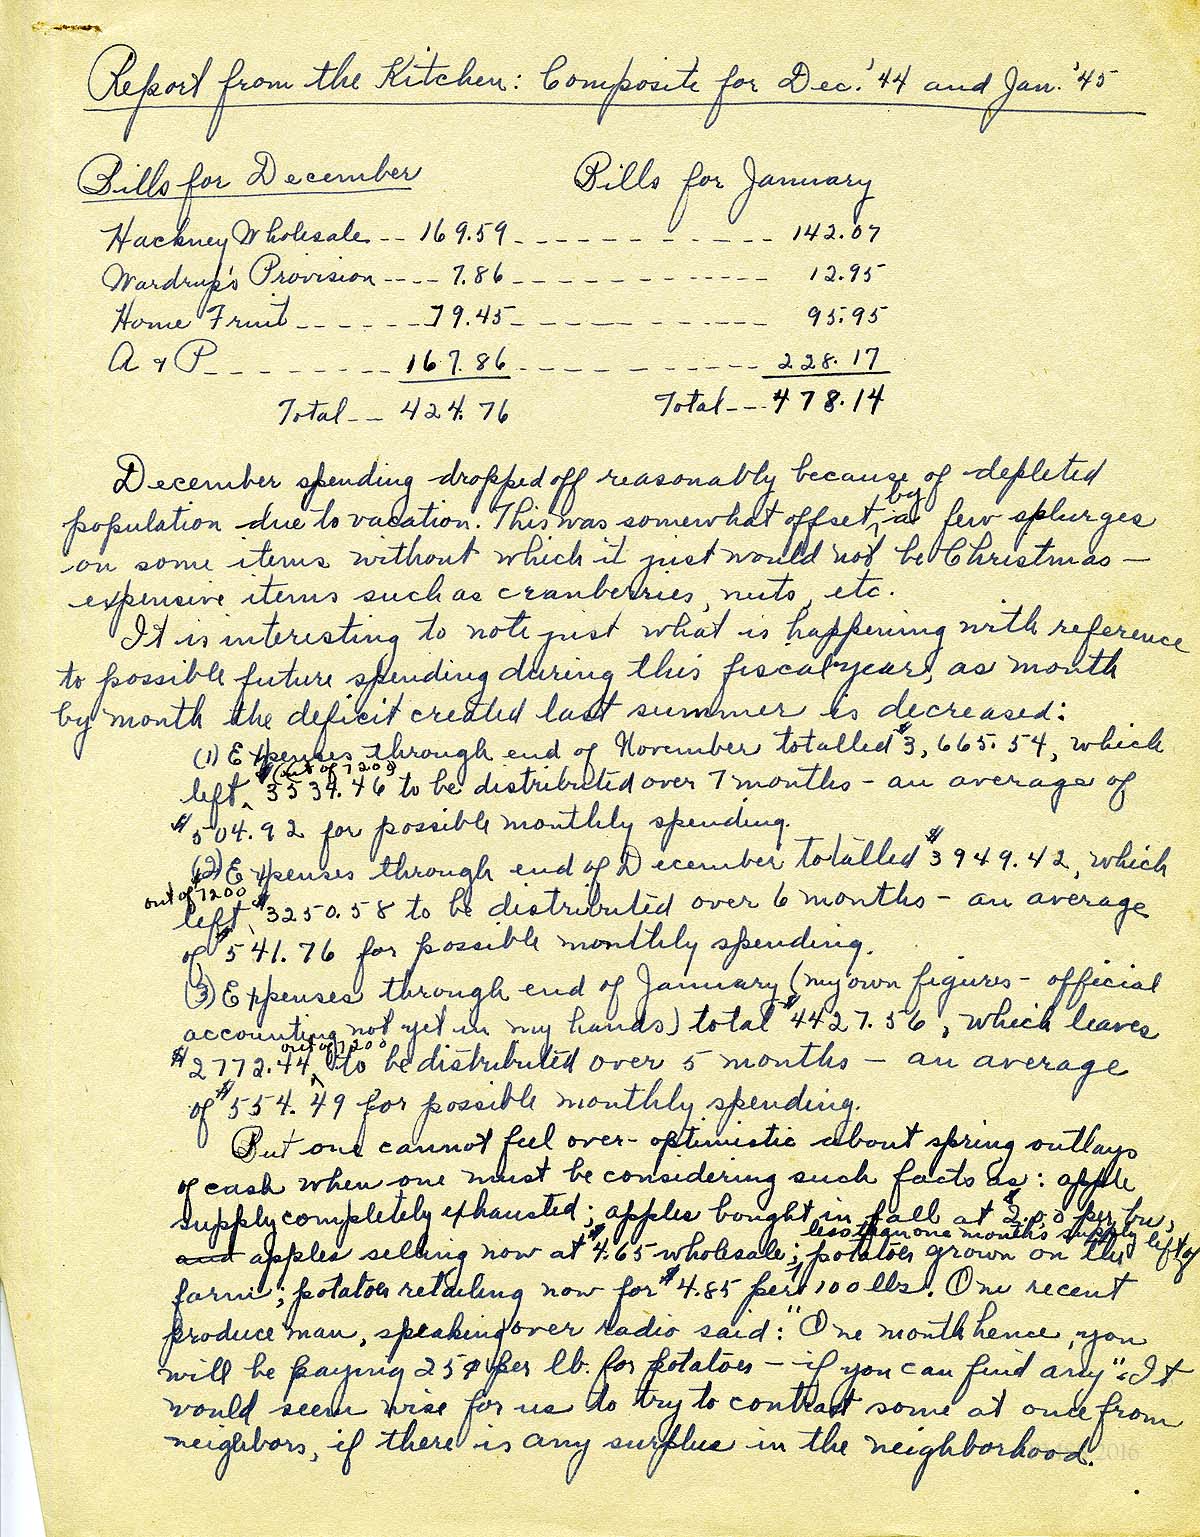 Report from the Kitchen: Composite for Dec. '44 and Jan. '45
Bills for December Bills for January
Hackney Wholesale -- 169.59 ---------- 142.07
Wardrup's Provision ---- 7.86 ---------- 12.95
Home Fruit ------- 79.45 ---------- 95.95
A & P --------- 167.86 ---------- 228.17
Total -- 424.76 Total --- 478.14
December spending dropped off reasonably because of depleted
population due to vacation. This was somewhat offset by a few splurges
on some items without which it just would not be Christmas —
expensive items such as cranberries, nuts, etc.
It is interesting to note just what is happening with reference
to possible future spending during this fiscal year, as month
by month the deficit created last summer is decreased:
(1) Expenses through end of November totalled $3,665.54, which
left (out of 7200) $3534.46 to be distributed over 7 months - an average of
$504.92 for possible monthly spending.
(2) Expenses through end of December totalled $3949.42, which
left out of $7200 $3250.58 to be distributed over 6 months - an average
of $541.76 for possible monthly spending.
(3) Expenses through end of January (my own figures - official
accounting not yet in my hands) total $4427.56, which leaves
$2772.44 out of 7200 to be distributed over 5 months — an average
of $554.49 for possible monthly spending.
But one cannot feel over-optimistic about spring outlays
of cash when one must be considering such facts as: apple
supply completely exhausted; apples bought in fall at $2.00 per bu.,
and apples selling now at $4.65 wholesale; less than one month's supply left of potatoes grown on the
farm; potatoes retailing now for $4.85 per 100 lbs. One recent
produce man, speaking over radio said: "One month hence, you
will be paying 25¢ per lb. for potatoes - if you can find any". It
would seem wise for us to try to contract some at once from
neighbors, if there is any surplus in the neighborhood.